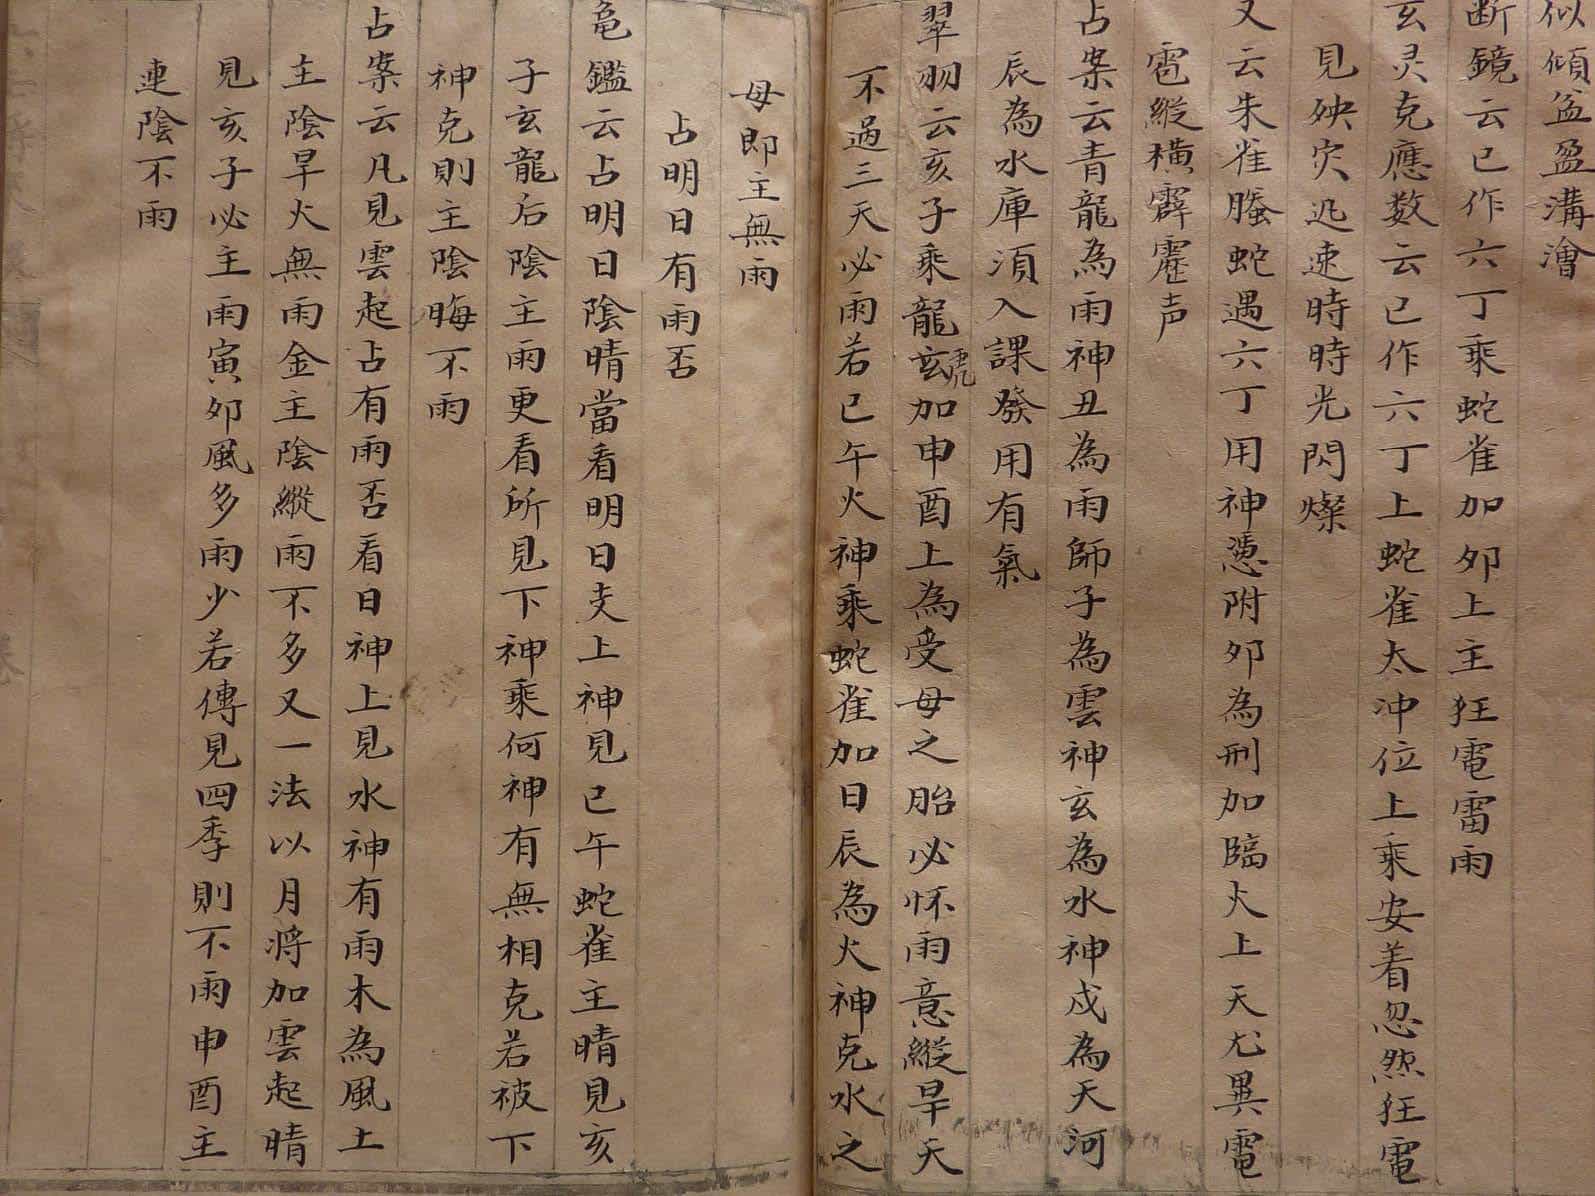 似傾盆盈溝澮
断鏡云巳作六丁乘蛇雀加夘上主狂電雷雨
玄灵克應数云巳作六丁上蛇雀太冲位上乘安着忽然狂電
見殃灾迅速時時光閃燦
又云朱雀螣蛇遇六丁用神憑附夘為刑加臨火上天尤異電
雹縱橫霹靂声
占案云青龍為雨神丑為雨師子為雲神玄為水神戌為天河
辰為水庫須入課發用有氣
翠羽云亥子乘龍玄虎加申酉上為受母之胎必怀雨意縱旱天
不過三天必雨若巳午火神乘蛇雀加日辰為火神克水之
母即主無雨
占明日有雨否
龟鑑云占明日陰晴當看明日支上神見巳午蛇雀主晴見亥
子玄龍后陰主雨更看所見下神乘何神有無相克若被下
神克則主陰晦不雨
占案云凡見雲起占有雨否看日神上見水神有雨木為風土
主陰旱火無雨金主陰縱雨不多又一法以月將加雲起晴
見亥子必主雨寅夘風多雨少若傳見四季則不雨申酉主
連陰不雨